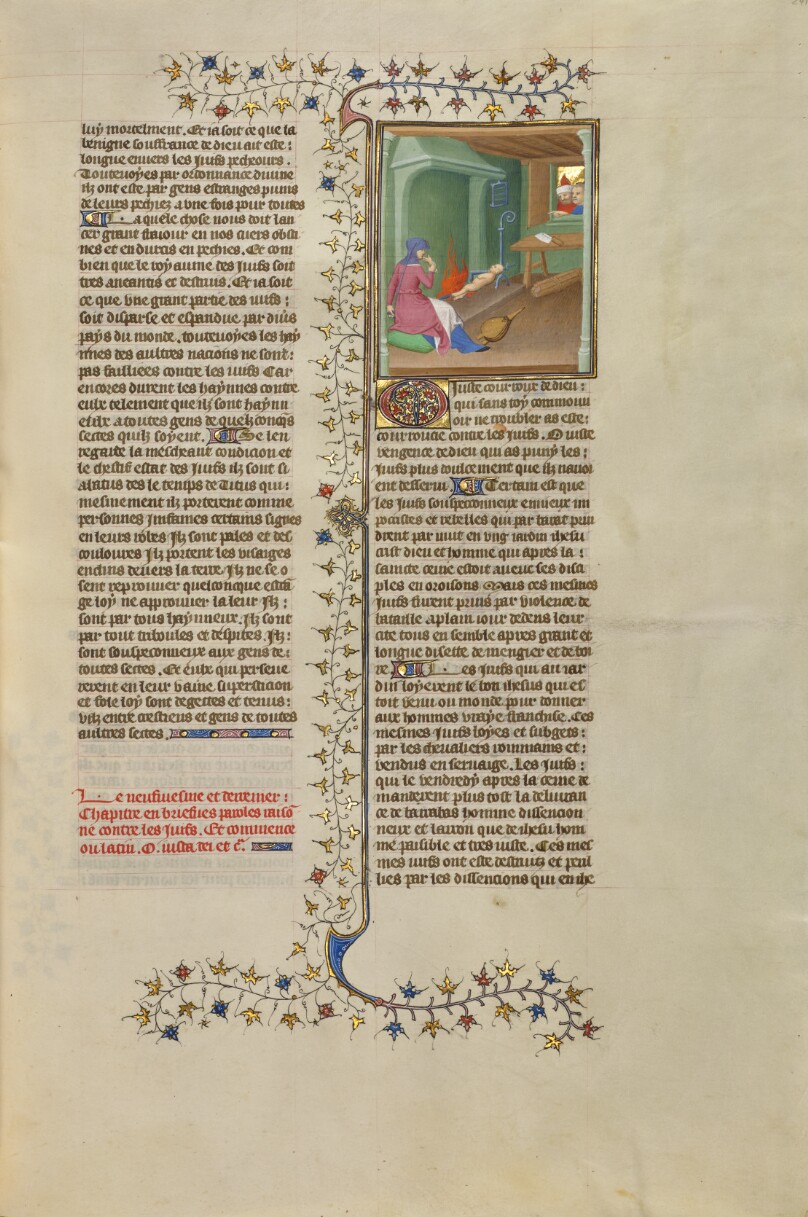 luy mortelment. Et ia soit ce que la
benigne souffrance de dieu ait este :
longue enuers les iuifs pecheours .
Toutesuoyes par ordonnance diuine
ilz ont este par gens estranges puniz
de leurs pechiez a vne fois pour toutes
La quele chose nous doit lan
cer grant fraiour en nos cuers obsti
nes et endurcis en pechies. Et com
bien que le roy aume des Juifs soit
tres aneantis et destruis. Et ia soit
ce que vne grant partie des iuifs :
soit disparse et espandue par diuers
pays du monde. toutesuoyes les hay
nnes des aultres nacions ne sont :
pas faillies contre les iuifs Car
encores durent les haynnes contre
eulx telement que ilz sont haynn
eux a toutes gens de quelconques
sectes quilz soyent. Se len
regarde la meschant condicion et
le chetif estat des Juifs ilz sont si
abatus des le temps de Titus qui :
mesmement ilz porterent comme
personnes Jnfames certains signes
en leurs robes Jlz sont pales et des
coulourez Jlz portent les visaiges
enclins deuers la terre. Jlz ne se o
sent reprouuer quelconque estra
ge loy ne approuuer la leur Jlz :
sont par tous haynneux. Jlz sont
par tout triboules et despites. Jlz :
sont souspeconneux aux gens de :
toutes sectes. Et ceulx qui perseue
rerent en leur vaine supersticion
et fole loy sont degettes et tenus :
vilz entre crestiens et gens de toutes
aultres sectes.
Le neufiuesme et derrenier :
Chapitre en briefues paroles raiso
ne contre les Juifs. Et commence
ou latin. O. iusta dei et c.
O Juste courroux de dieu :
qui sans toy commouui
oir ne troubler as este :
courroucie contre les Juifs. O iuste
vengence de dieu qui as puny les :
Juifs plus doulcement que ilz nauoi
ent desserui. Certain est que
les Juifs souspeconneux enuieux im
pocrites et rebelles qui par barat prin
drent par nuit en vng iardin ihesu
crist dieu et homme qui apres la :
saincte cene estoit auec ses disci
ples en oroisons Mais ces mesmes
Juifs furent prins par violence de
bataille a plain iour dedens leur
cite tous ensemble apres grant et
longue disette de mengier et de boi
re. Les Juifs qui au iar
din loyerent le bon ihesus qui es
toit venu ou monde pour donner
aux hommes vraye franchise. Ces
mesmes Juifs loyes et subgets :
par les cheualiers rommains et :
vendus en seruaige. Les Juifs :
qui le vendredy apres la cene de
manderent plus tost la deliuran
ce de barrabas homme dissencion
neux et larron que de ihesu hom
me paisible et tres iuste. Ces mes
mes iuifs ont este destruis et peril
lies par les dissencions qui en ihe